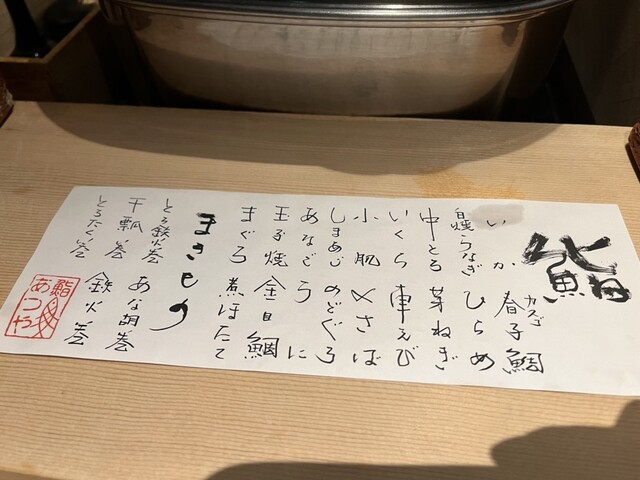 鮨
いか 春子鯛
カスゴ
白焼うなぎ ひらめ
中とろ 芽ねぎ
いくら 車えび
小肌 〆さば
しまあじ のどぐろ
あなご うに
玉子焼 金目鯛
まぐろ 煮ほたて
まきもの
とろ鉄火巻 あな胡巻
干瓢巻 鉄火巻
とろたく巻
鮨
あつや